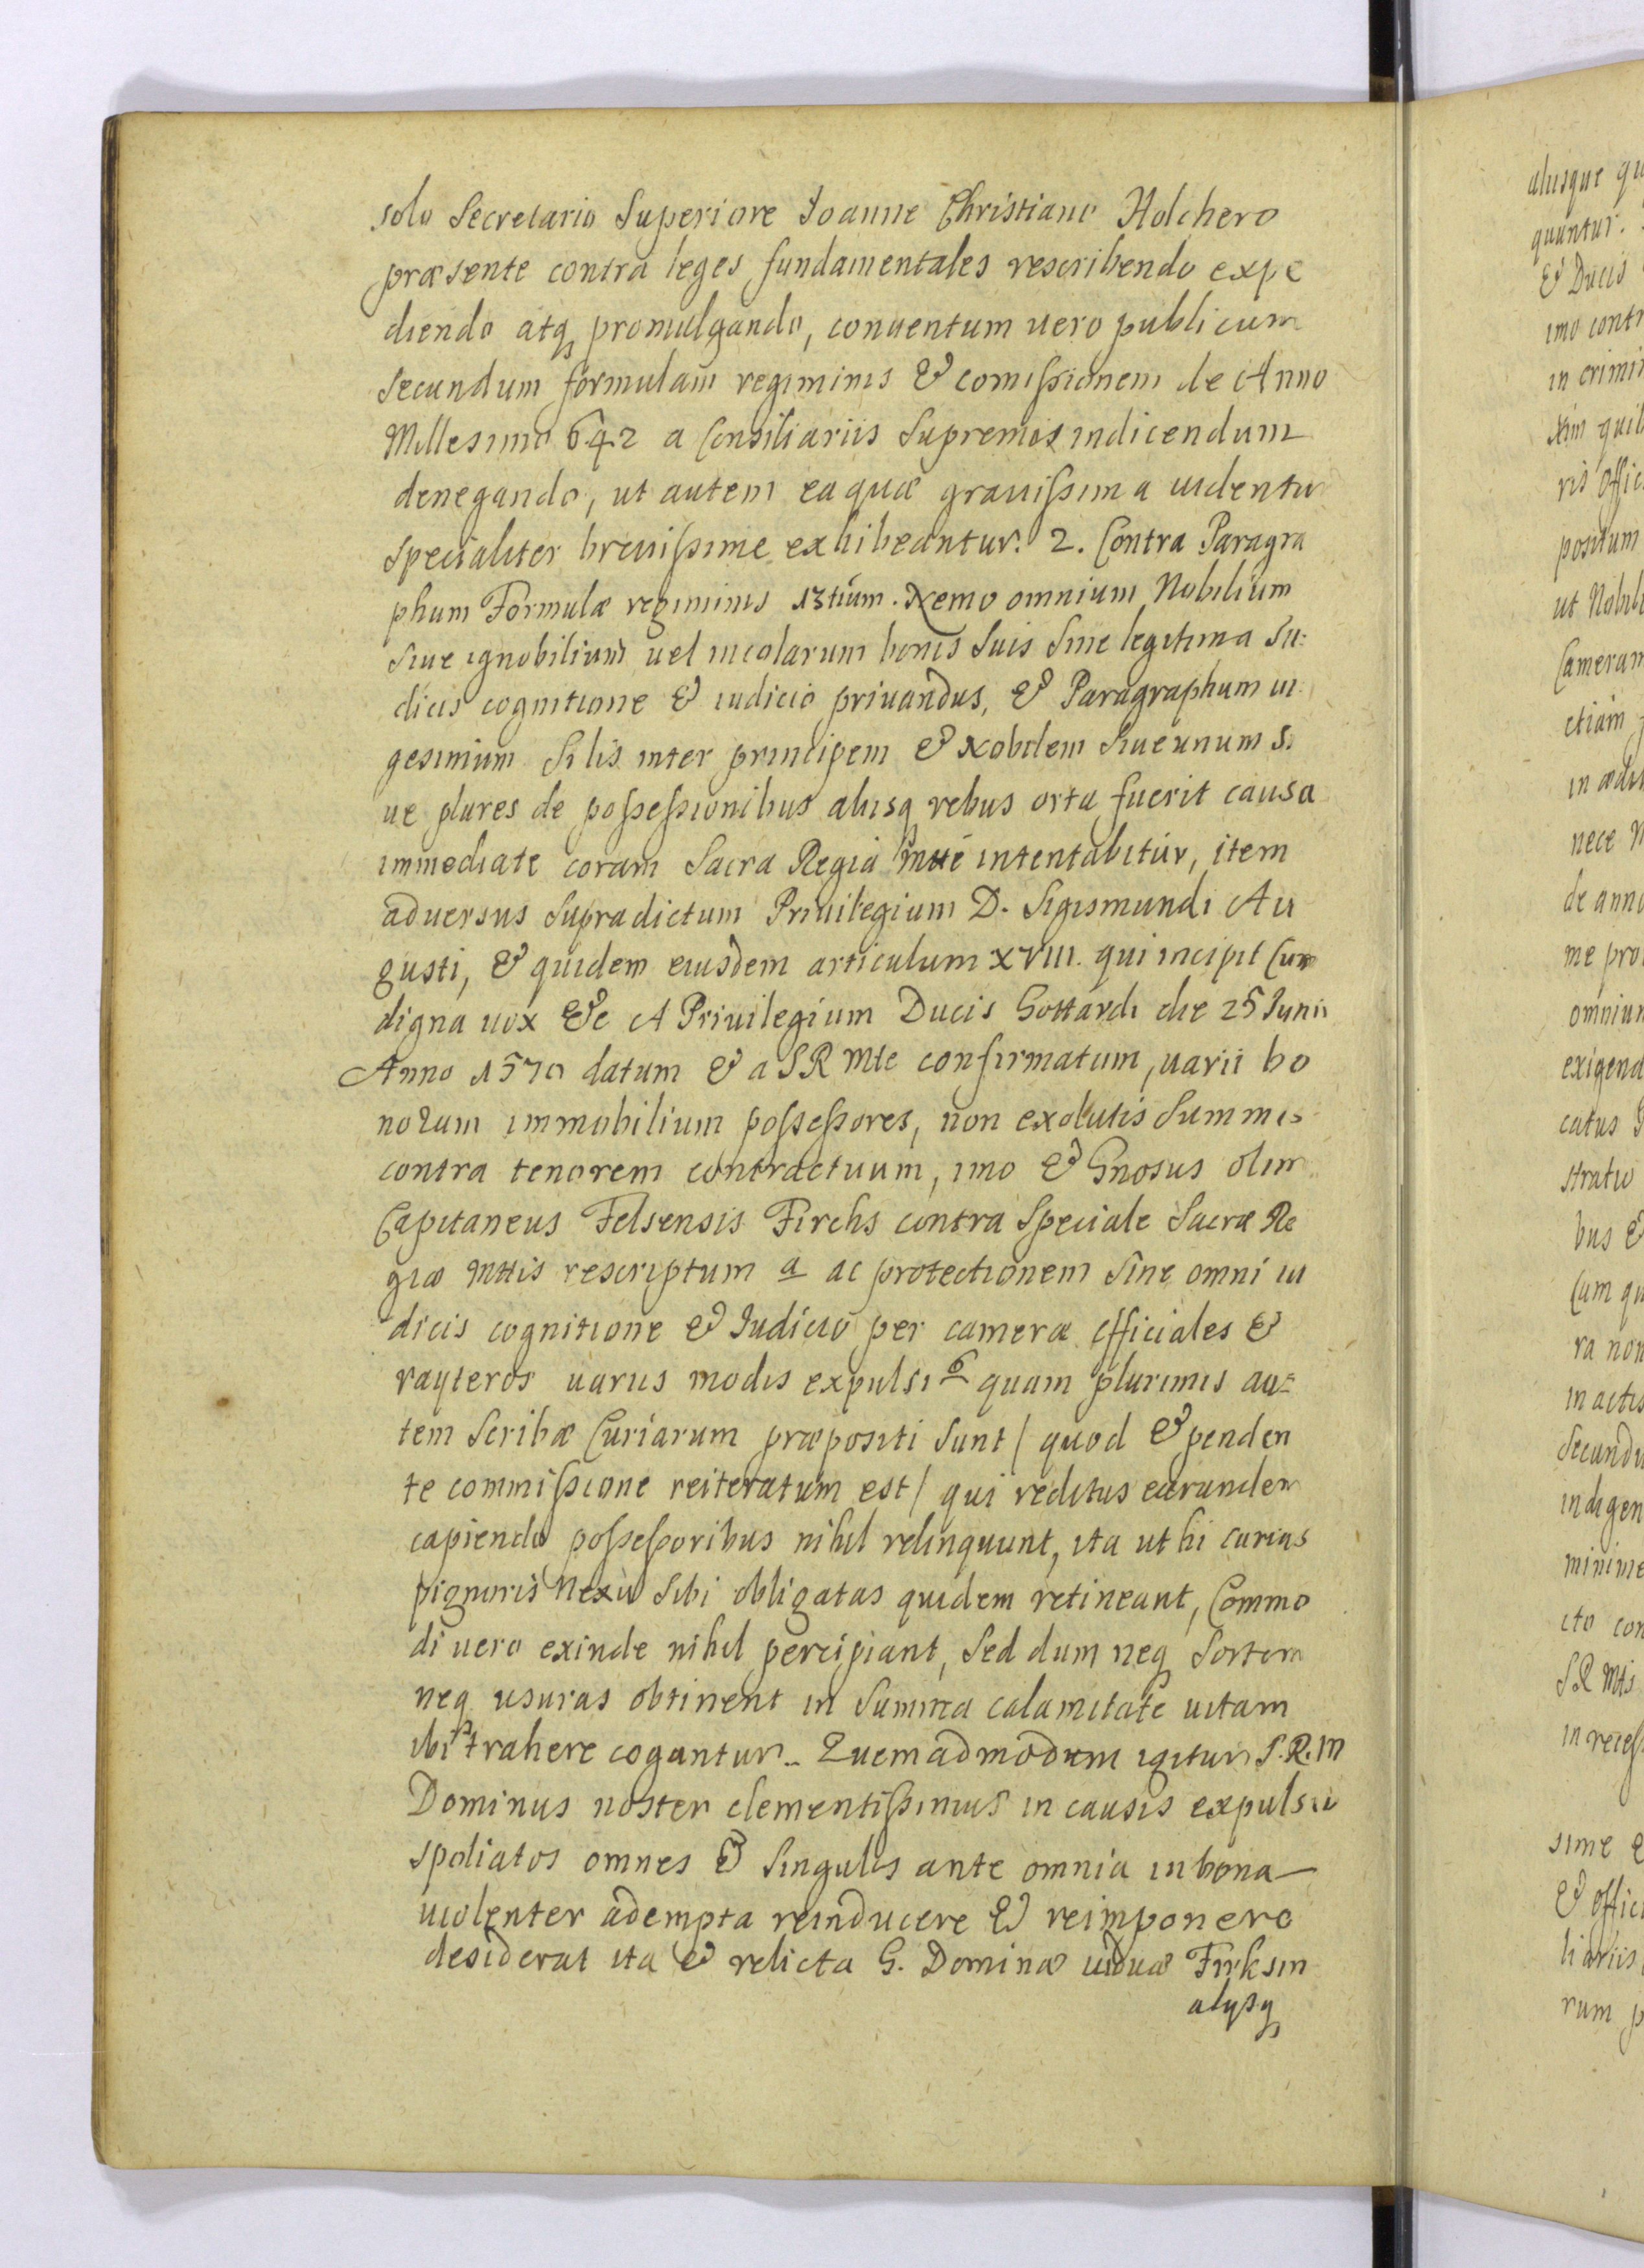 solo Secretario Superiore Joanne Christiano Holchero
præsente contra leges fundamentales rescribendo expe
diendo atq promulgando, conuentum uero publicum
secundum formulam regiminis & comißionem de Anno
Millesimo 642 a Consiliariis Supremis indicendum
denegando, ut autem ea quæ grauißima uidentur
specialiter breuißime exhibeantur. 2. Contra Paragra
phum Formulæ regiminis 13tium. Nemo omnium Nobilium
siue ignobilium uel incolarum bonis suis sine legitima Iu:
dicis cognitione & iudicio priuandus, & Paragraphum ui
gesimum Si lis inter principem & Nobilem siue unum si
ue plures de poßeßionibus aliisq rebus orta fuerit causa
immediate coram Sacra Regia Mtte intentabitur, item
aduersus supradictum Priuilegium D. Sigismundi Au
gusti, & quidem eiusdem articulum XVIII. qui incipit Cum
digna uox &c A Priuilegium Ducis Gottardi die 25 Junii
Anno 1570 datum & a SR Mte confirmatum, uarii bo
norum immobilium poßeßores, non exolutis summis
contra tenorem contractuum, imo & Gnosus olim
Capitaneus Felsensis Firchs contra speciale Sacræ Re
giæ Mttis rescriptum a ac protectionem sine omni iu
dicis cognitione & Judicio per cameræ officiales &
rayteros uariis modis expulsi b quam plurimis au=
tem scribæ Curiarum præpositi sunt / quod & penden
te commißione reiteratum est / qui reditus earundem
capiendo poßeßoribus nihil relinquunt, ita ut hi curias
pignoris Nexu sibi obligatas quidem retineant, Commo
di uero exinde nihil percipiant, sed dum neq sortem
neq usuras obtinent in summa calamitate uitam
ibi trahere cogantur. Quemadmodum igitur S.R.M
Dominus noster clementißimus in causis expulsiu
spoliatos omnes & singulos ante omnia in bona
uiolenter adempta reinducere & reimponere
desiderat ita & relicta G. Dominæ uiduæ Firksin
alysq
alusque qu
quuntur.
& Ducis
imo contr
in crimin
xim quil
ris offic
positum
ut Nobili
Cameram
etiam
in ædi
nece N
de anno
me pro
omnium
exigend
catus
stratio
bus &
Cum qu
ra non
in actis
Secundu
indigen
minime
cto con
S.R Mtis
in receß
sime &
& offici
liariis
rum p